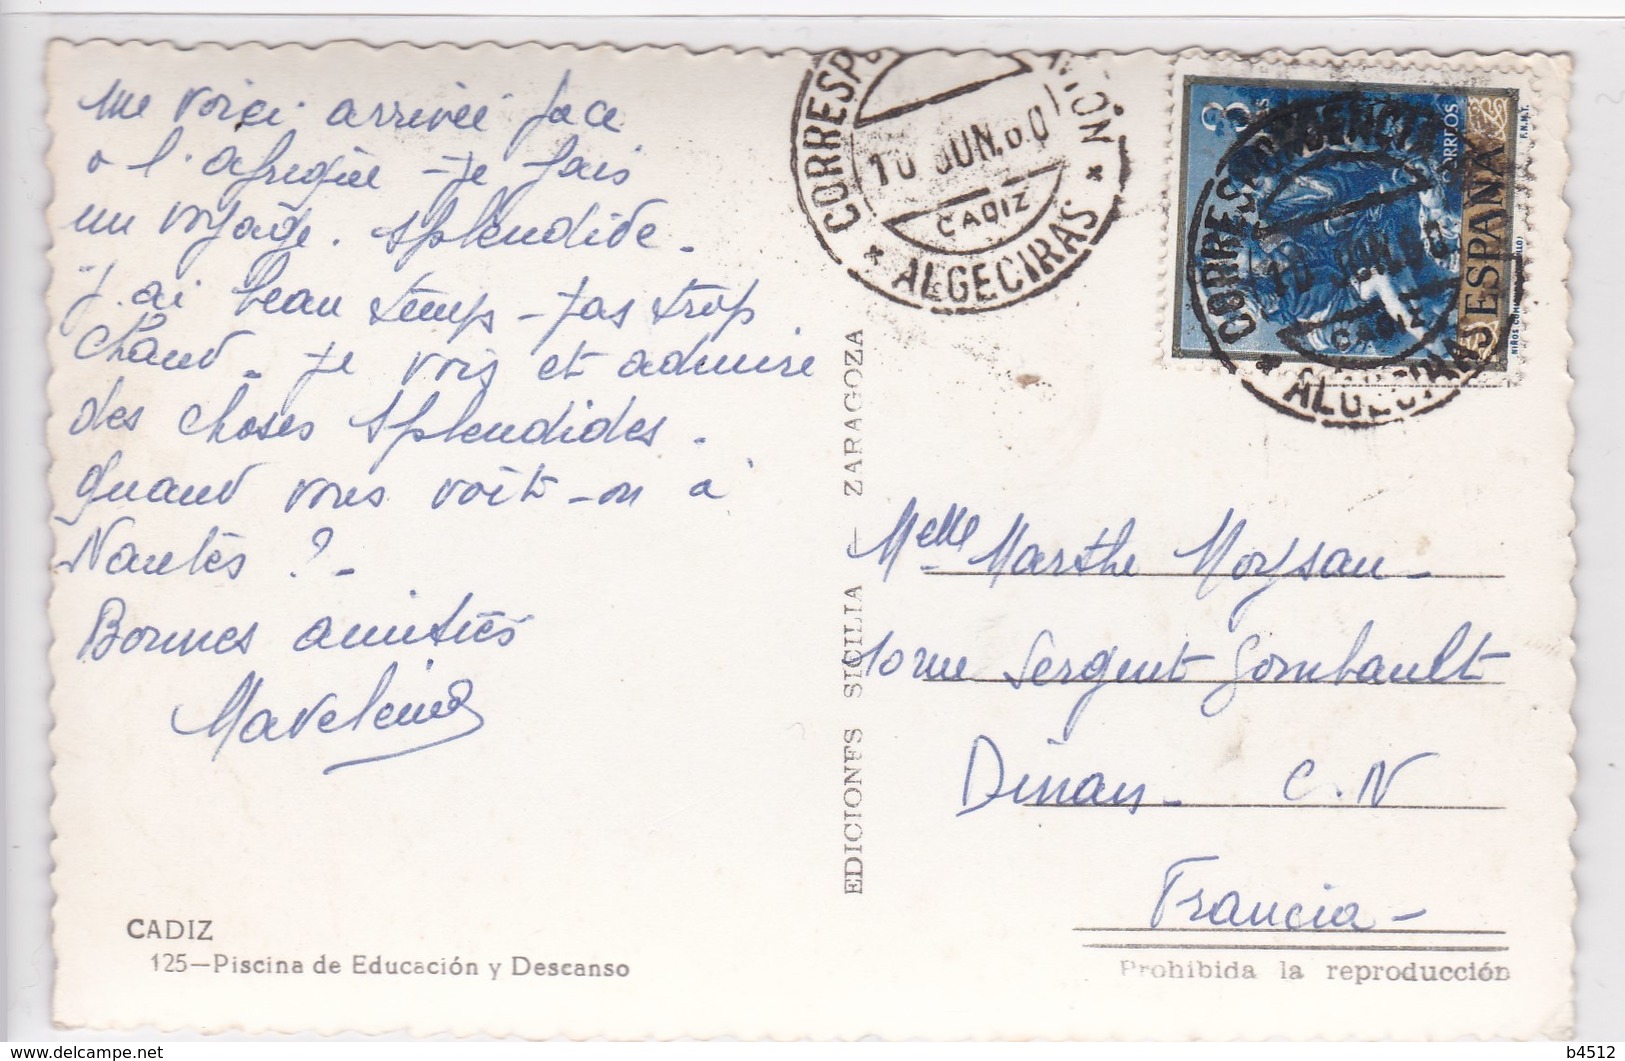 me voici arrivée face
a l'afrique - je fais
un voyage. splendide -
j'ai beau temps - pas trop
chaud - je vois et admire
des choses splendides -
quand vous voit-on à
Nantes ? -
Bonnes amitiés
CADIZ
125—Piscina de Educación y Descanso
EDICIONES SICILIA — ZARAGOZA
CORRESP
10 JUN. 60
CADIZ
* ALGECIRAS *
3
CORREOS
ESPAÑA
F.N.M.T.
10 JUN. 60
CADIZ
Melle Marthe Moysan -
10 rue Sergent Gombault
Dinan - C. N
Francia -
Prohibida la reproducción
b4512